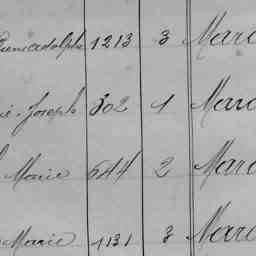 adolphe 1213 3 Marc
Joseph 302 1 Marc
Marie 644 2 Marc
Marie 1131 3 Marc